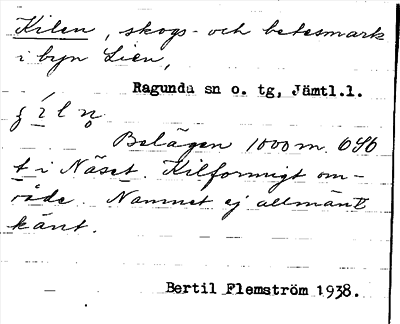 Kilen, skogs- och betesmark
i byn Lien,
Ragunda sn o. tg, Jämtl.l.
Belägen 1000 m
t i Näset. Kilformigt om-
råde. Namnet ej allmänt
känt.
Bertil Flemström 1938.